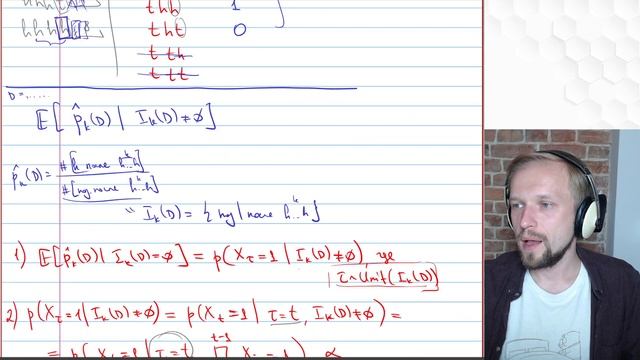 hhh
thh 1
hhhhtt
tht 0
t th
t tt
D = .....
𝔼[ p̂ₖ(D) | Iₖ(D) ≠ ∅ ]
p̂ₖ(D) = #[h после h..h] / #[после h..h]
Iₖ(D) = { | после h..h }
1) 𝔼[p̂ₖ(D) | Iₖ(D) = ∅] = p(X_τ = 1 | Iₖ(D) ≠ ∅), где
τ ~ Unif(Iₖ(D))
2) p(X_τ = 1 | Iₖ(D) ≠ ∅) = p(X_t = 1 | τ = t, Iₖ(D) ≠ ∅) =
= p(X_t = 1 | τ = t, t-1 ∏ X_i = 1) ∝